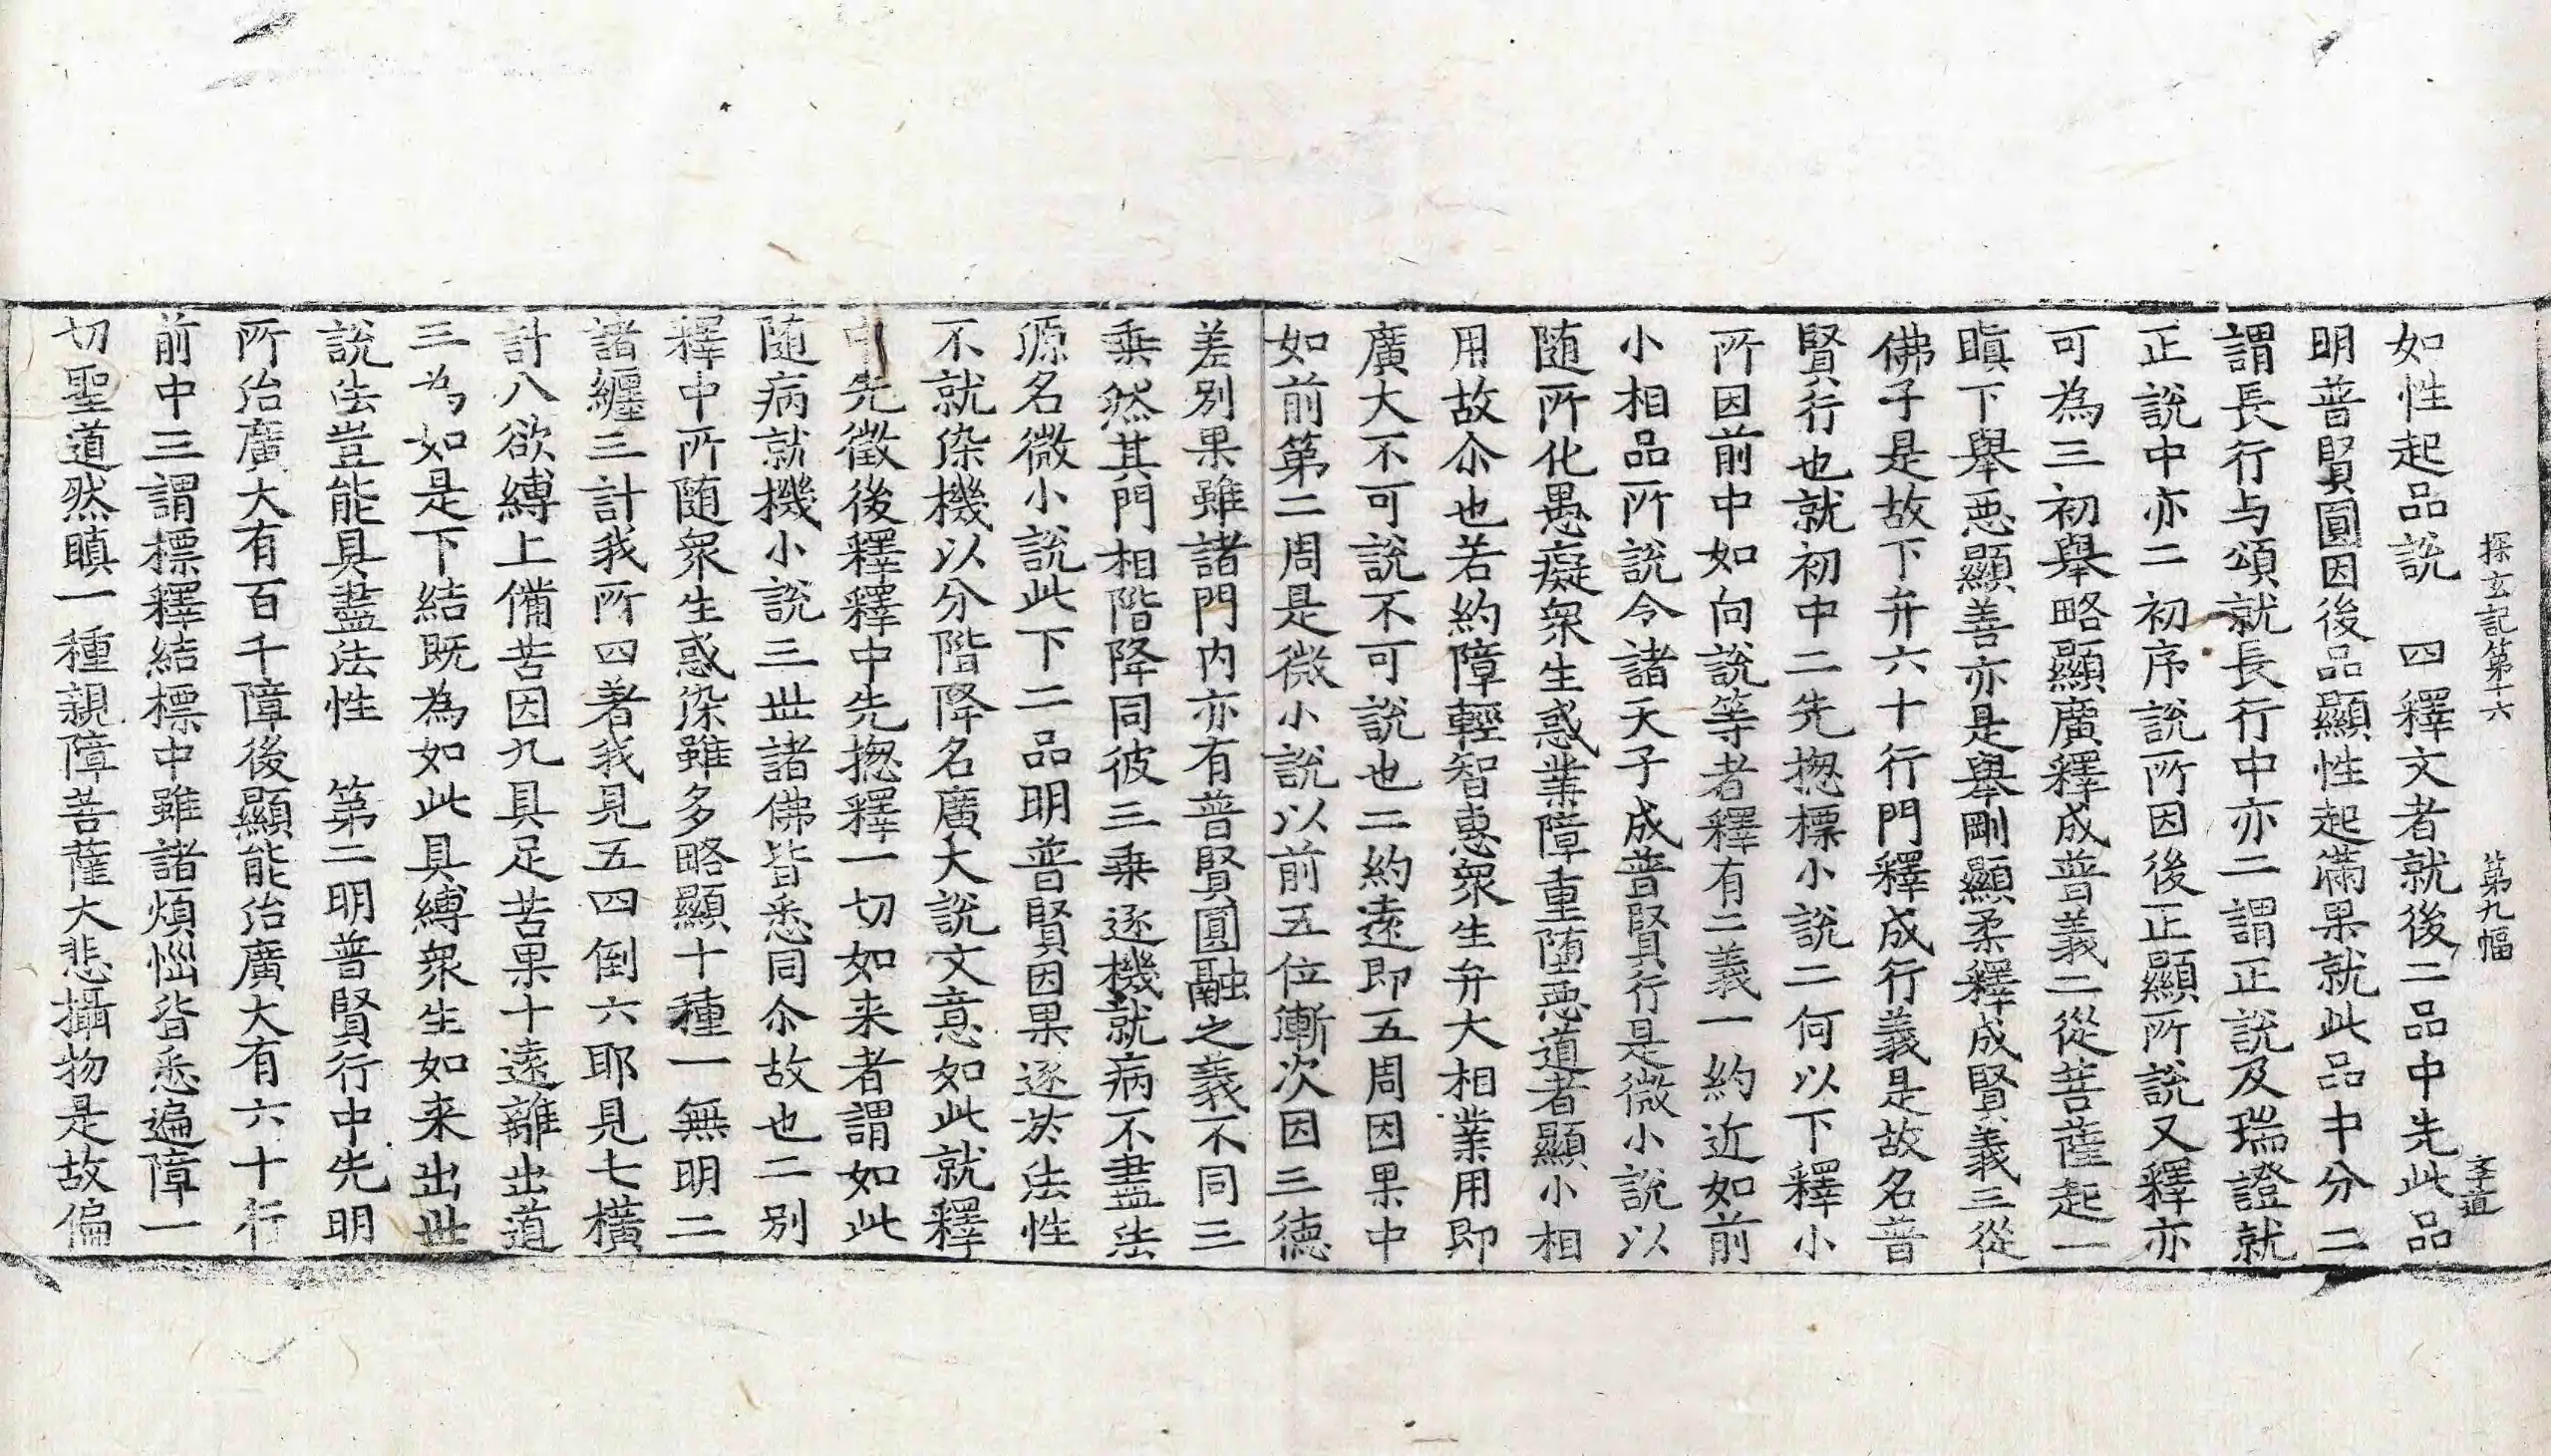 探玄記第十六　第九幅　字道
如性起品說　四釋文者就後二品中先此品
明普賢圓因後品顯性起滿果就此品中分二
謂長行与頌就長行中亦二謂正說及瑞證就
正說中亦二初序說所因後正顯所說又釋亦
可為三初舉略顯廣釋成普義二從菩薩起一
瞋下舉惡顯善亦是舉剛顯柔釋成賢義三從
佛子是故下弁六十行門釋成行義是故名普
賢行也就初中二先揔標小說二何以下釋小
所因前中如向說等者釋有二義一約近如前
小相品所說令諸天子成普賢行是微小說以
随所化愚癡衆生惑業障重堕惡道者顯小相
用故尒也若約障輕智惠衆生弁大相業用即
廣大不可說不可說也二約遠即五周因果中
如前第二周是微小說以前五位漸次因三徳
差別果雖諸門内亦有普賢圓融之義不同三
乗然其門相階降同彼三乗逐機就病不盡法
源名微小說此下二品明普賢因果逐於法性
不就染機以分階降名廣大說文意如此就釋
中先徵後釋釋中先揔釋一切如来者謂如此
随病就機小說三世諸佛皆悉同尒故也二別
釋中所随衆生惑染雖多略顯十種一無明二
諸纏三計我所四著我見五四倒六耶見七橫
計八欲縛上備苦因九具足苦果十遠離出道
三為如是下結既為如此具縛衆生如来出世
說法豈能具盡法性　第二明普賢行中先明
所治廣大有百千障後顯能治廣大有六十行
前中三謂標釋結標中雖諸煩惱皆悉遍障一
切聖道然瞋一種親障菩薩大悲攝物是故偏